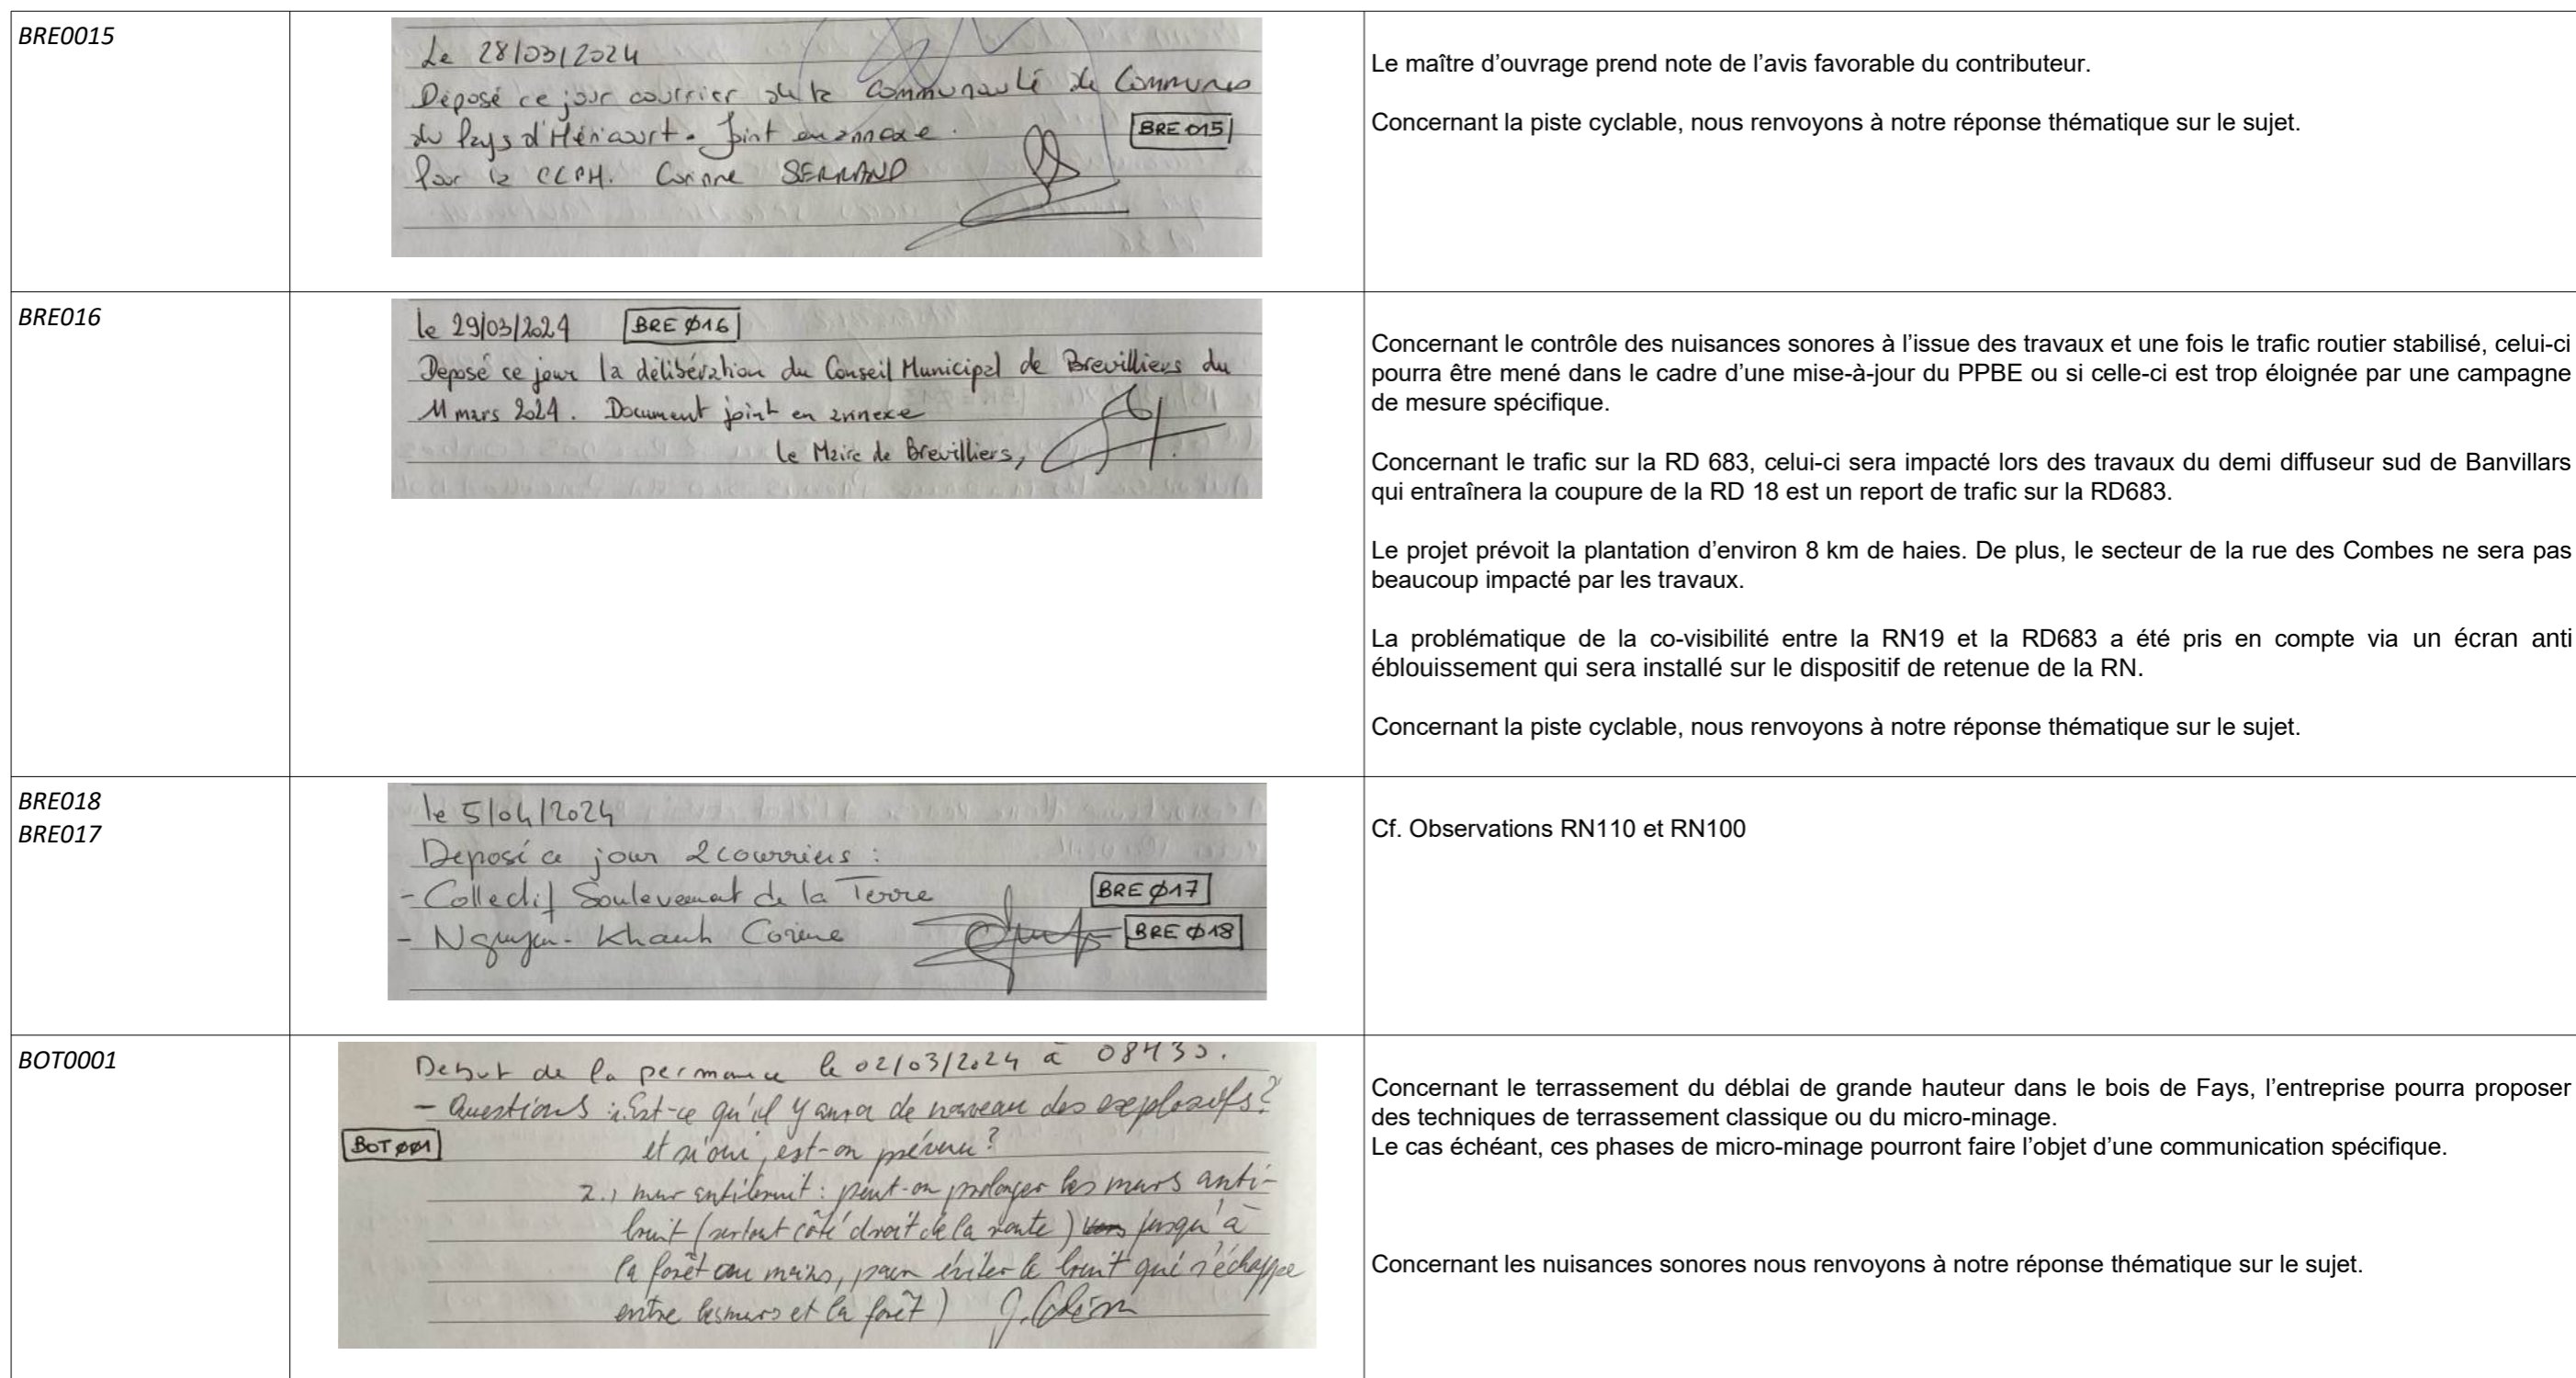 BRE0015
Le 28/03/2024
Déposé ce jour courrier de la Communauté de Communes
du Pays d'Héricourt. Joint en annexe.
BRE 015
Pour la CCPH. Corinne SERRAND
Le maître d’ouvrage prend note de l’avis favorable du contributeur.
Concernant la piste cyclable, nous renvoyons à notre réponse thématique sur le sujet.
BRE016
le 29/03/2024 BRE Ø16
Déposé ce jour la délibération du Conseil Municipal de Brevilliers du
11 mars 2024. Document joint en annexe
le Maire de Brevilliers,
Concernant le contrôle des nuisances sonores à l’issue des travaux et une fois le trafic routier stabilisé, celui-ci
pourra être mené dans le cadre d’une mise-à-jour du PPBE ou si celle-ci est trop éloignée par une campagne
de mesure spécifique.
Concernant le trafic sur la RD 683, celui-ci sera impacté lors des travaux du demi diffuseur sud de Banvillars
qui entraînera la coupure de la RD 18 est un report de trafic sur la RD683.
Le projet prévoit la plantation d’environ 8 km de haies. De plus, le secteur de la rue des Combes ne sera pas
beaucoup impacté par les travaux.
La problématique de la co-visibilité entre la RN19 et la RD683 a été pris en compte via un écran anti
éblouissement qui sera installé sur le dispositif de retenue de la RN.
Concernant la piste cyclable, nous renvoyons à notre réponse thématique sur le sujet.
BRE018
BRE017
le 5/04/2024
Déposé ce jour 2 courriers :
- Collectif Soulevement de la Terre BRE Ø17
- Nguyen-Khanh Corine BRE Ø18
Cf. Observations RN110 et RN100
BOT0001
Debut de la permanence le 02/03/2024 à 08H30.
- Questions : 1. Est-ce qu'il y aura de nouveau des explosifs?
BOT ØØ1
et si oui, est-on prévenu?
2.) mur antibruit : peut-on prolonger les murs anti-
bruit (surtout côté droit de la route) jusqu'à
la forêt au moins, pour éviter le bruit qui s'échappe
entre les murs et la forêt)
Concernant le terrassement du déblai de grande hauteur dans le bois de Fays, l’entreprise pourra proposer
des techniques de terrassement classique ou du micro-minage.
Le cas échéant, ces phases de micro-minage pourront faire l’objet d’une communication spécifique.
Concernant les nuisances sonores nous renvoyons à notre réponse thématique sur le sujet.